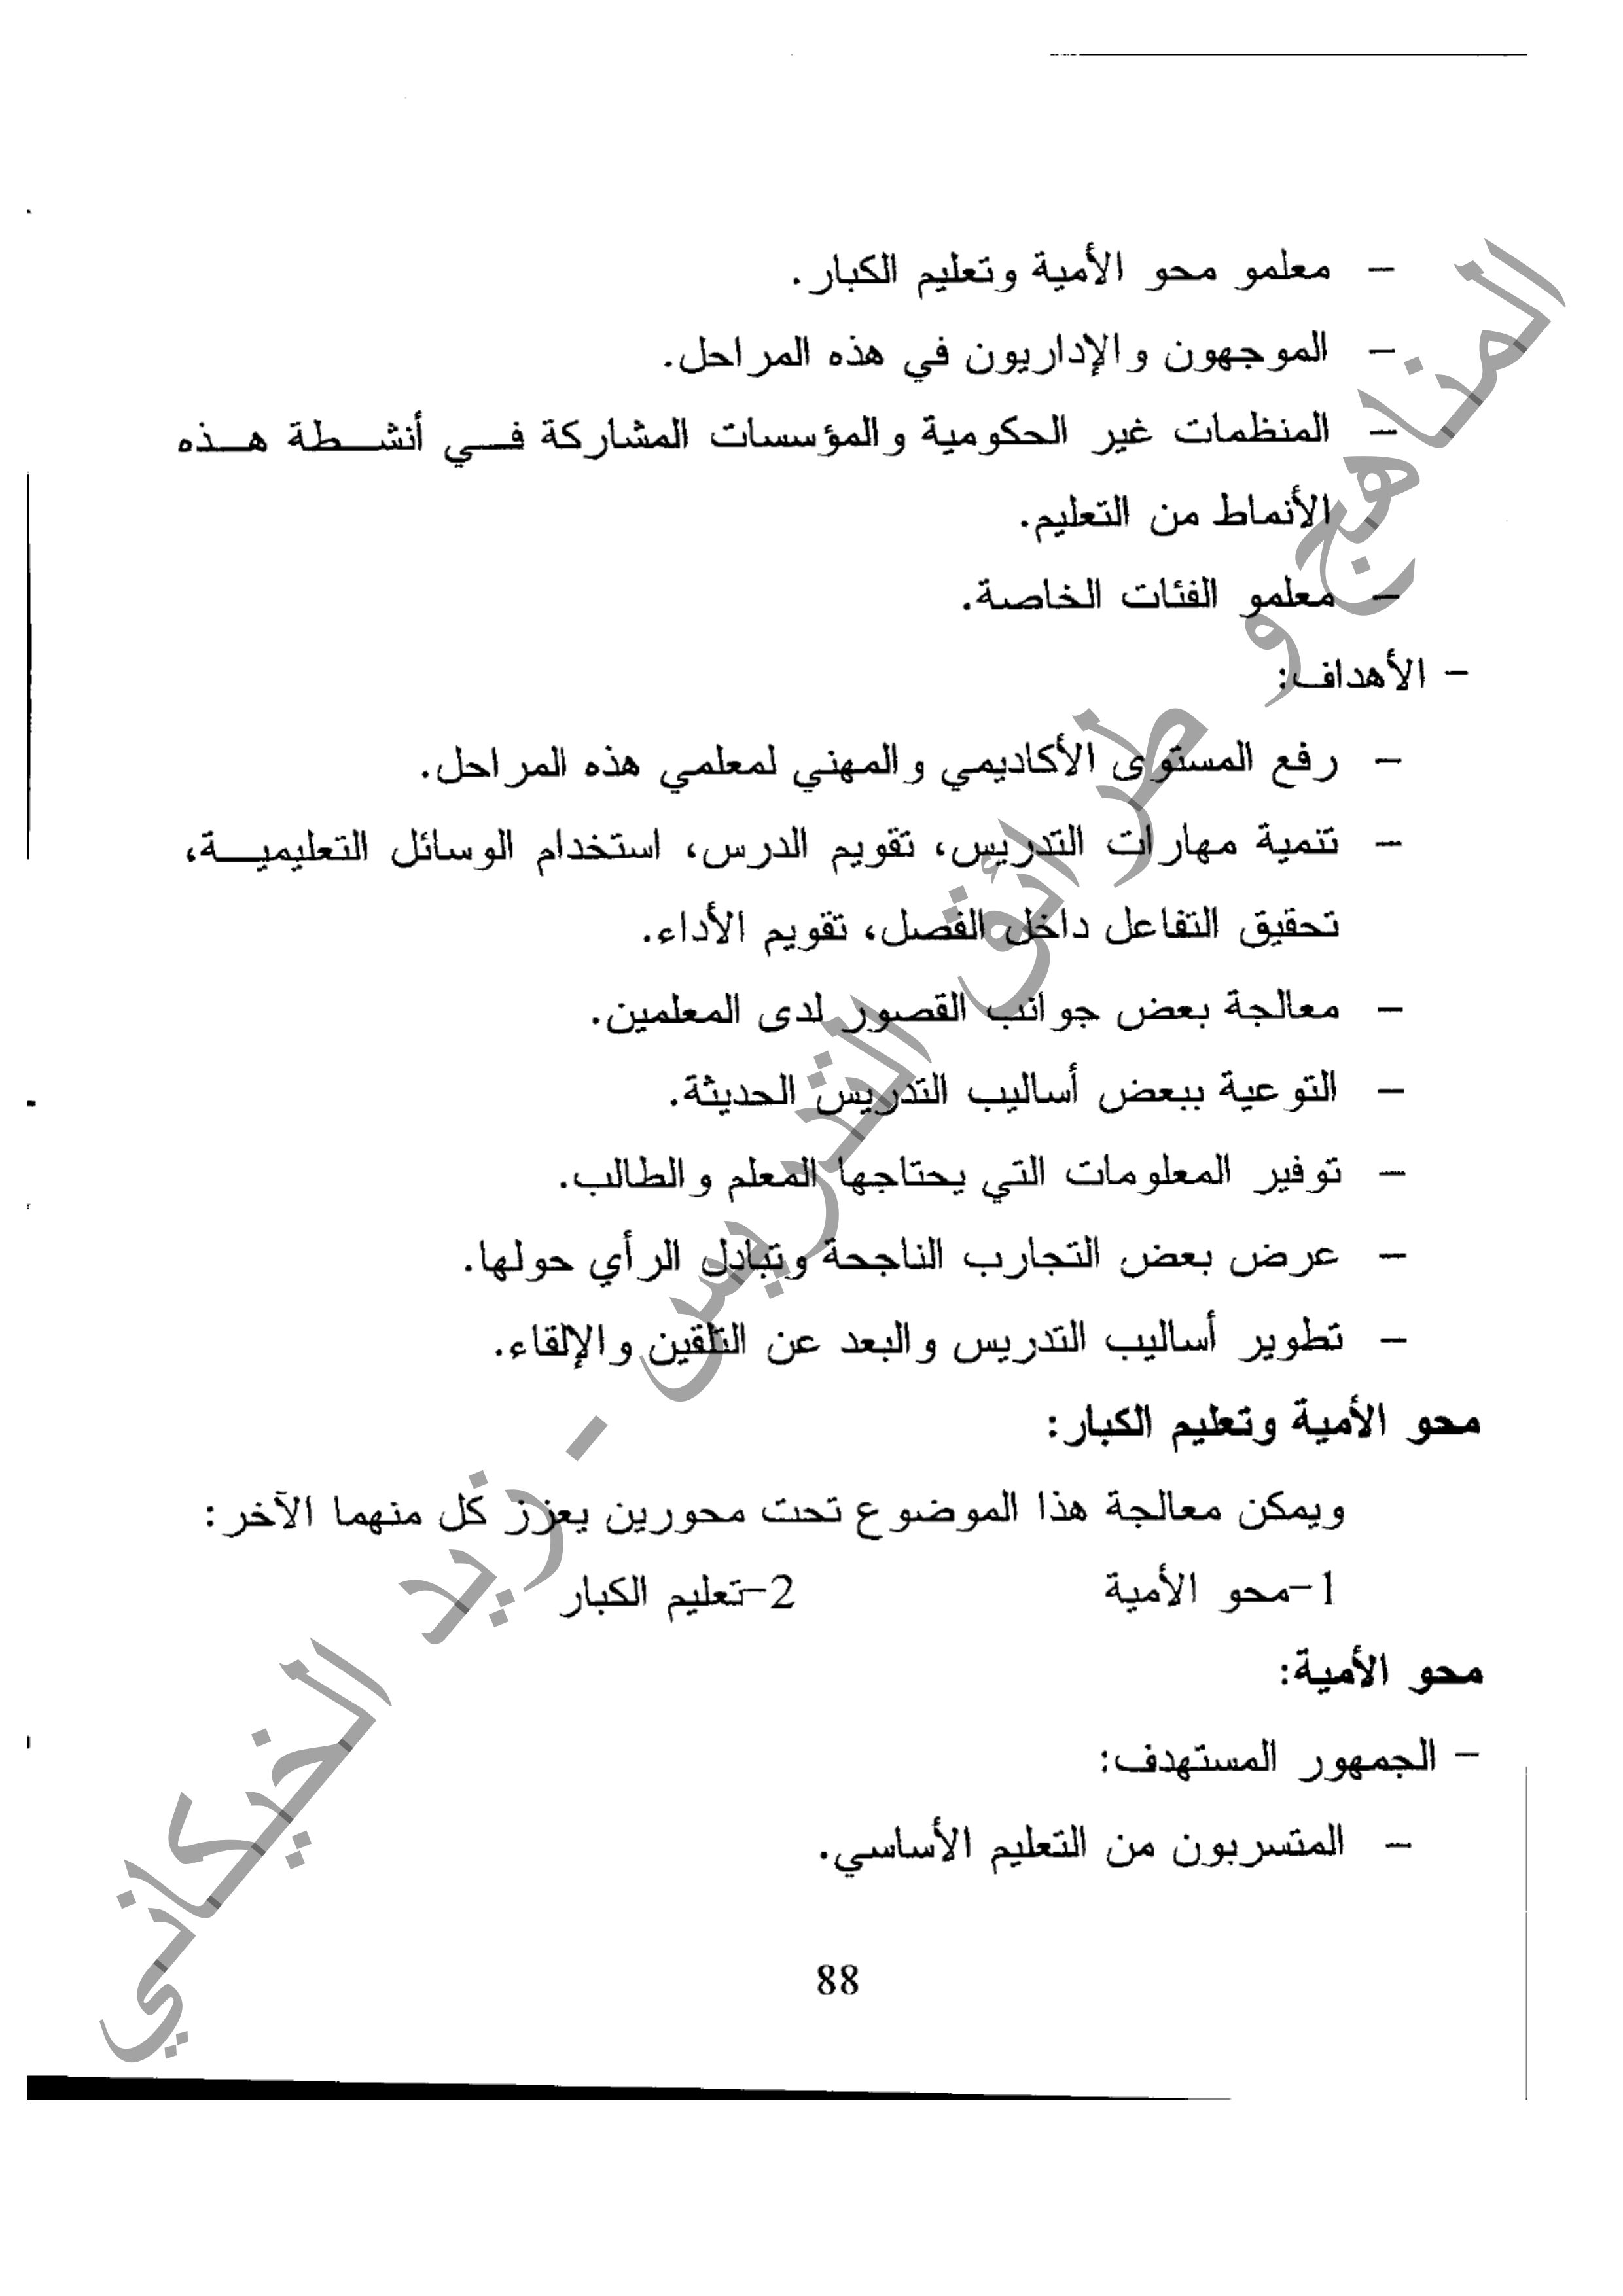 - معلمو محو الأمية وتعليم الكبار.
- الموجهون والإداريون في هذه المراحل.
- المنظمات غير الحكومية والمؤسسات المشاركة في أنشطة هذه
الأنماط من التعليم.
- معلمو الفئات الخاصة.
- الأهداف:
- رفع المستوى الأكاديمي والمهني لمعلمي هذه المراحل.
- تنمية مهارات التدريس، تقويم الدرس، استخدام الوسائل التعليمية،
تحقيق التفاعل داخل الفصل، تقويم الأداء.
- معالجة بعض جوانب القصور لدى المعلمين.
- التوعية ببعض أساليب التدريس الحديثة.
- توفير المعلومات التي يحتاجها المعلم والطالب.
- عرض بعض التجارب الناجحة وتبادل الرأي حولها.
- تطوير أساليب التدريس والبعد عن التلقين والإلقاء.
محو الأمية وتعليم الكبار:
ويمكن معالجة هذا الموضوع تحت محورين يعزز كل منهما الآخر:
1-محو الأمية 2-تعليم الكبار
محو الأمية:
- الجمهور المستهدف:
- المتسربون من التعليم الأساسي.
88
المناهج و طرائق التدريس - زيد الخيكاني